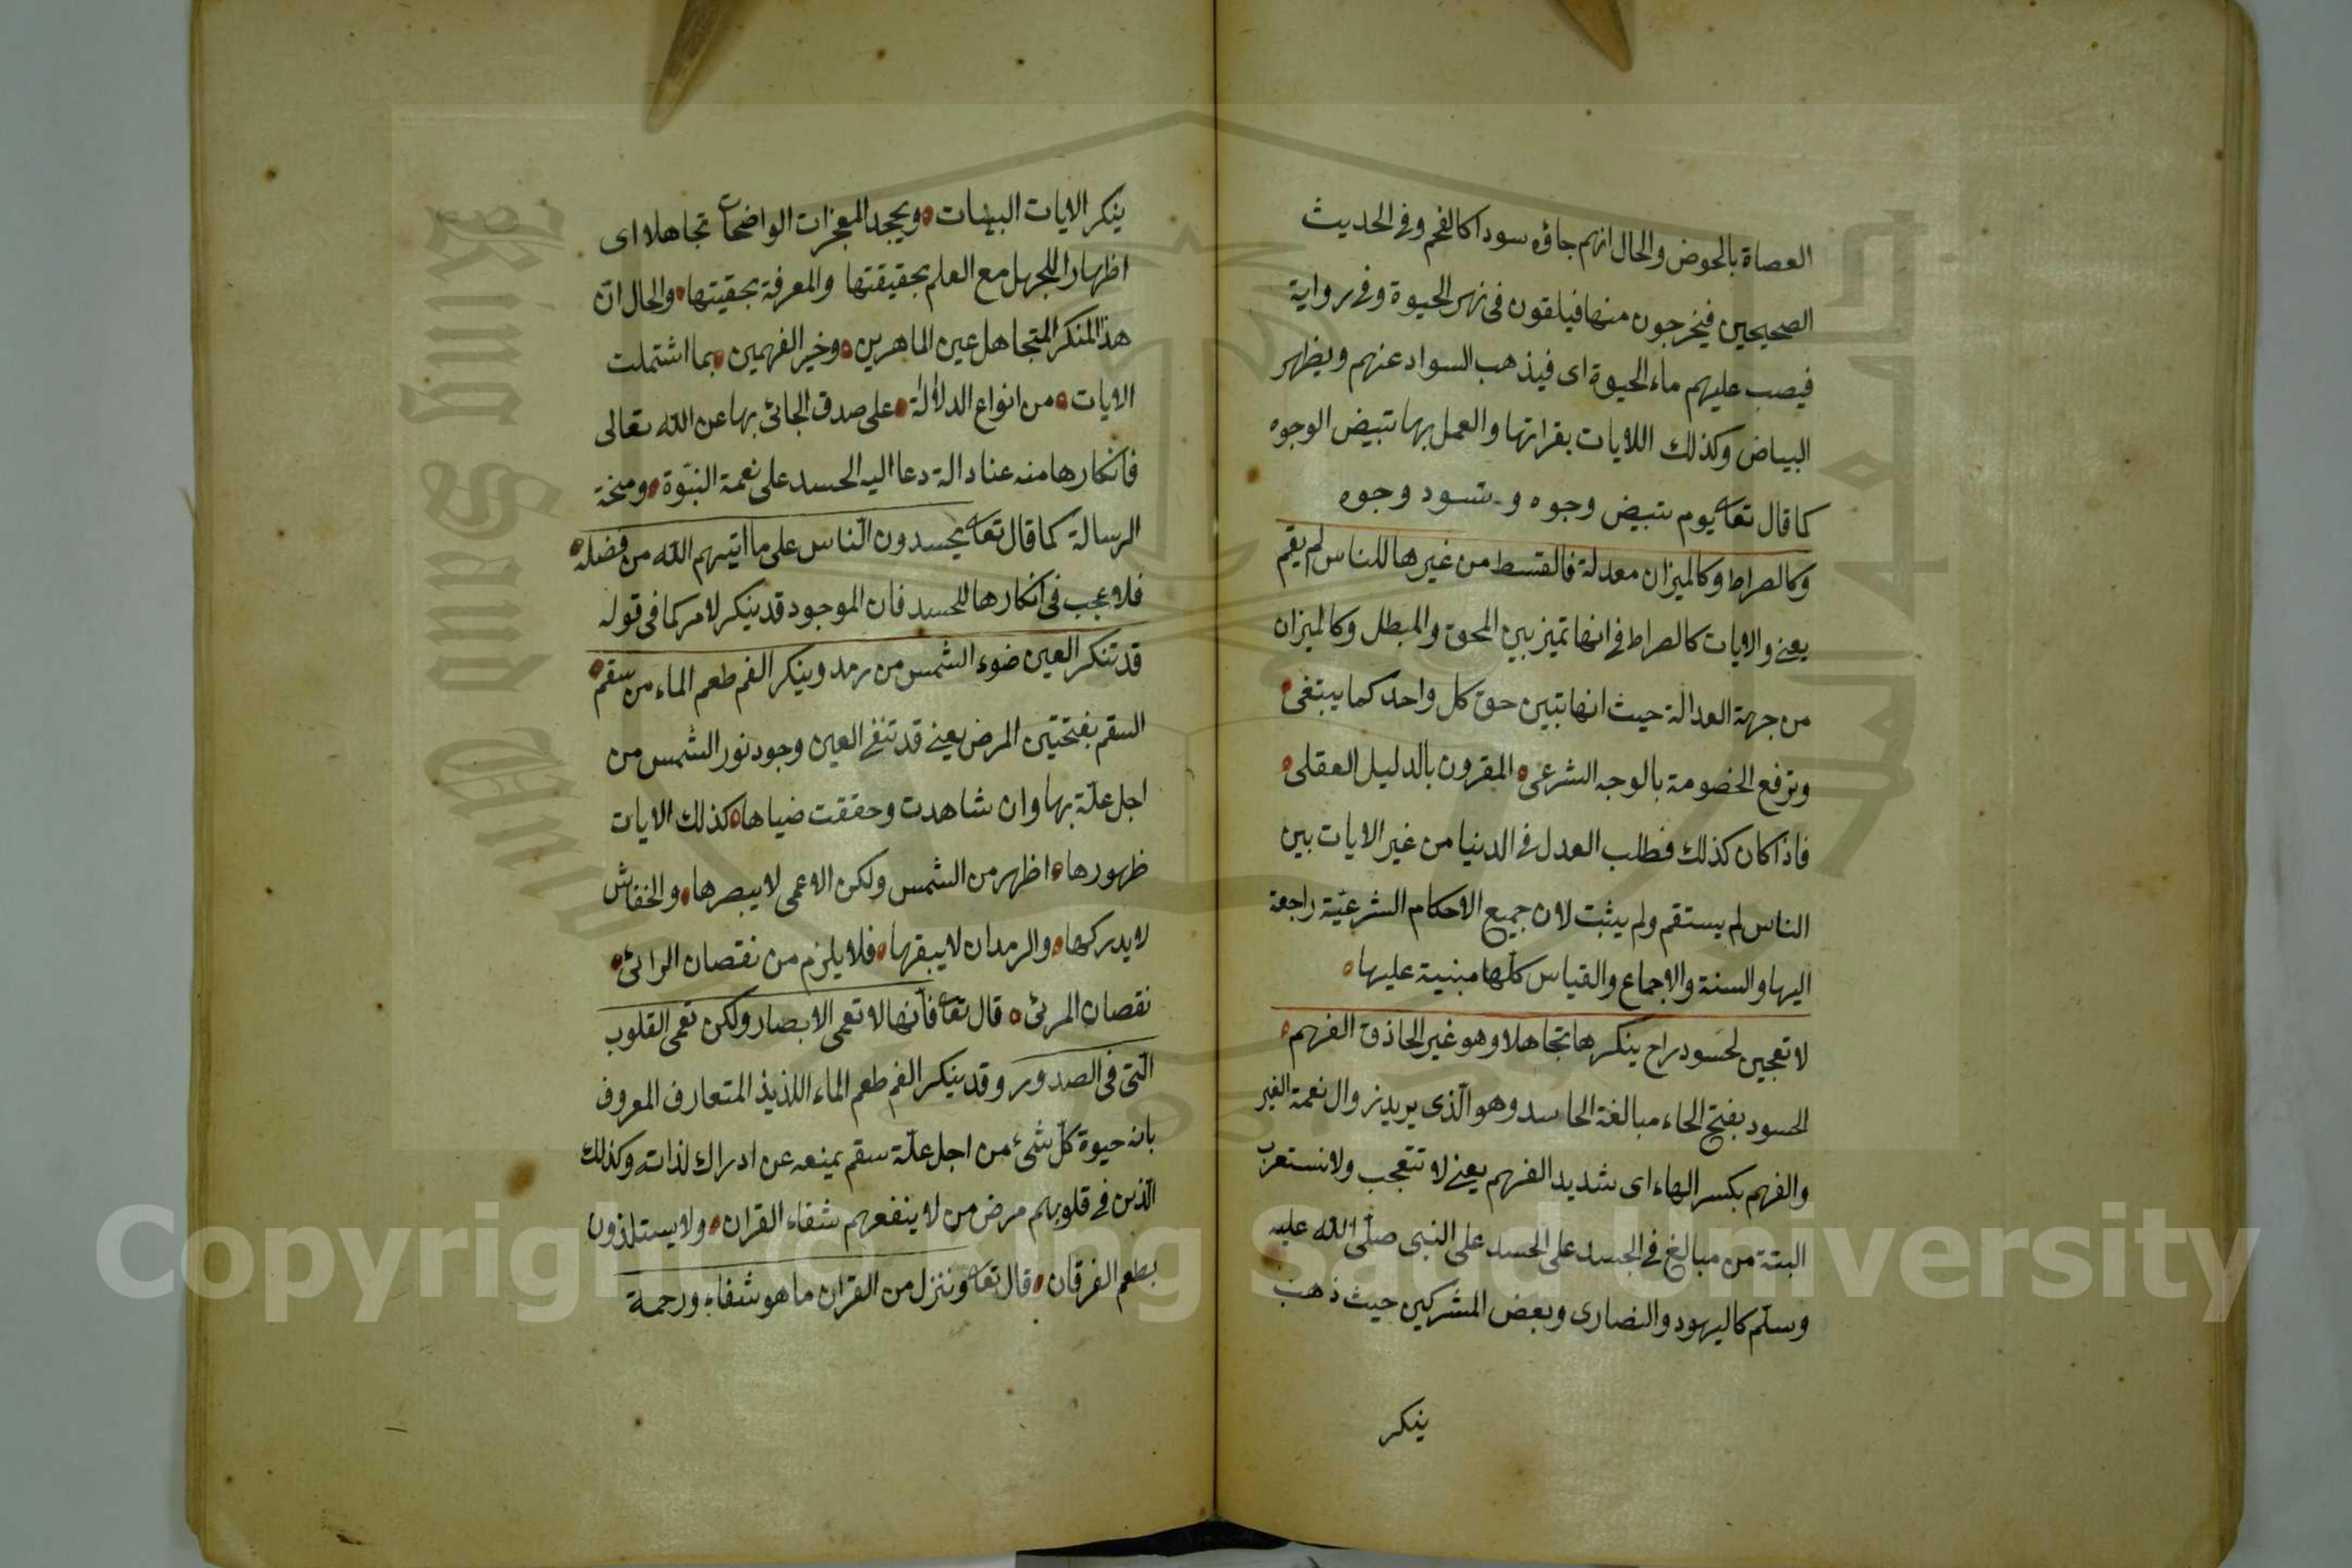 العصاة بالحوض والحال انهم جاؤه سودا كالفحم وفى الحديث
الصحيحين فيخرجون منها فيلقون فى نهر الحيوة وفى رواية
فيصب عليهم ماء الحيوة اى فيذهب السواد عنهم ويظهر
البياض وكذلك اللايات بقراتها والعمل بها تبيض الوجوه
كما قال تعا يوم تبيض وجوه و تسود وجوه
وكالصراط وكالميزان معدلة فالقسط من غيرها للناس لم يقم
يعنى والايات كالصراط فى انها تميز بين المحق والمبطل وكالميزان
من جهة العدالة حيث انها تبين حق كل واحد كما يبتغى
وترفع الخصومة بالوجه الشرعى المقرون بالدليل العقلى
فاذا كان كذلك فطلب العدل فى الدنيا من غير الايات بين
الناس لم يستقم ولم يثبت لان جميع الاحكام الشرعيّة راجعة
اليها والسنة والاجماع والقياس كلّها مبنية عليها
لا تعجبن لحسود راح ينكرها تجاهلا وهو غير الحاذق الفهم
الحسود بفتح الحاء مبالغة الحاسد وهو الّذى يريد زوال نعمة الغير
والفهم بكسر الهاء اى شديد الفهم يعنى لا تتعجب ولا نستعرب
البتة من مبالغ فى الجسد على الحسد على النبى صلّى الله عليه
وسلّم كاليهود والنصارى وبعض المشركين حيث ذهب
ينكر
ينكر الايات البينات ويجحد المعجزات الواضحات تجاهلا اى
اظهارا للجهل مع العلم بحقيقتها والمعرفة بحقيتها والحال انّ
هذ المنكر المتجاهل عين الماهرين وخير الفهمين بما اشتملت
الايات من انواع الدلالة على صدق الجائى بها عن الله تعالى
فانكارها منه عنادالة دعا اليه الحسد على نعمة النبّوة ومنحة
الرسالة كما قال تعا يحسدون النّاس على ما اتيهم الله من فضله
فلا عجب فى انكارها للحسد فان الموجود قد ينكر لامر كما فى قوله
قد تنكر العين ضوء الشمس من رمد وينكر الفم طعم الماء من سقم
السقم بفتحتين المرض يعنى قد تنفى العين وجود نور الشمس من
اجل علّة بها وان شاهدت وحققت ضياها كذلك الايات
ظهورها اظهر من الشمس ولكن الاعمى لا يبصرها والخفاش
لا يدركها والرمدان لا يبقرها فلا يلزم من نقصان الرائى
نقصان المرئى قال تعا فانّها لا تعمى الابصار ولكن تعمى القلوب
الّتى فى الصدور وقد ينكر الفم طعم الماء اللذيذ المتعارف المعروف
بانه حيوة كلّ شئ من اجل علّة سقم يمنعه عن ادراك لذاته وكذلك
الّذين فى قلوبهم مرض من لا ينفعهم شفاء القران ولا يستلذون
بطعم الفرقان قال تعا وننزل من القران ما هو شفاء ورحمة
Copyright © King Saud University